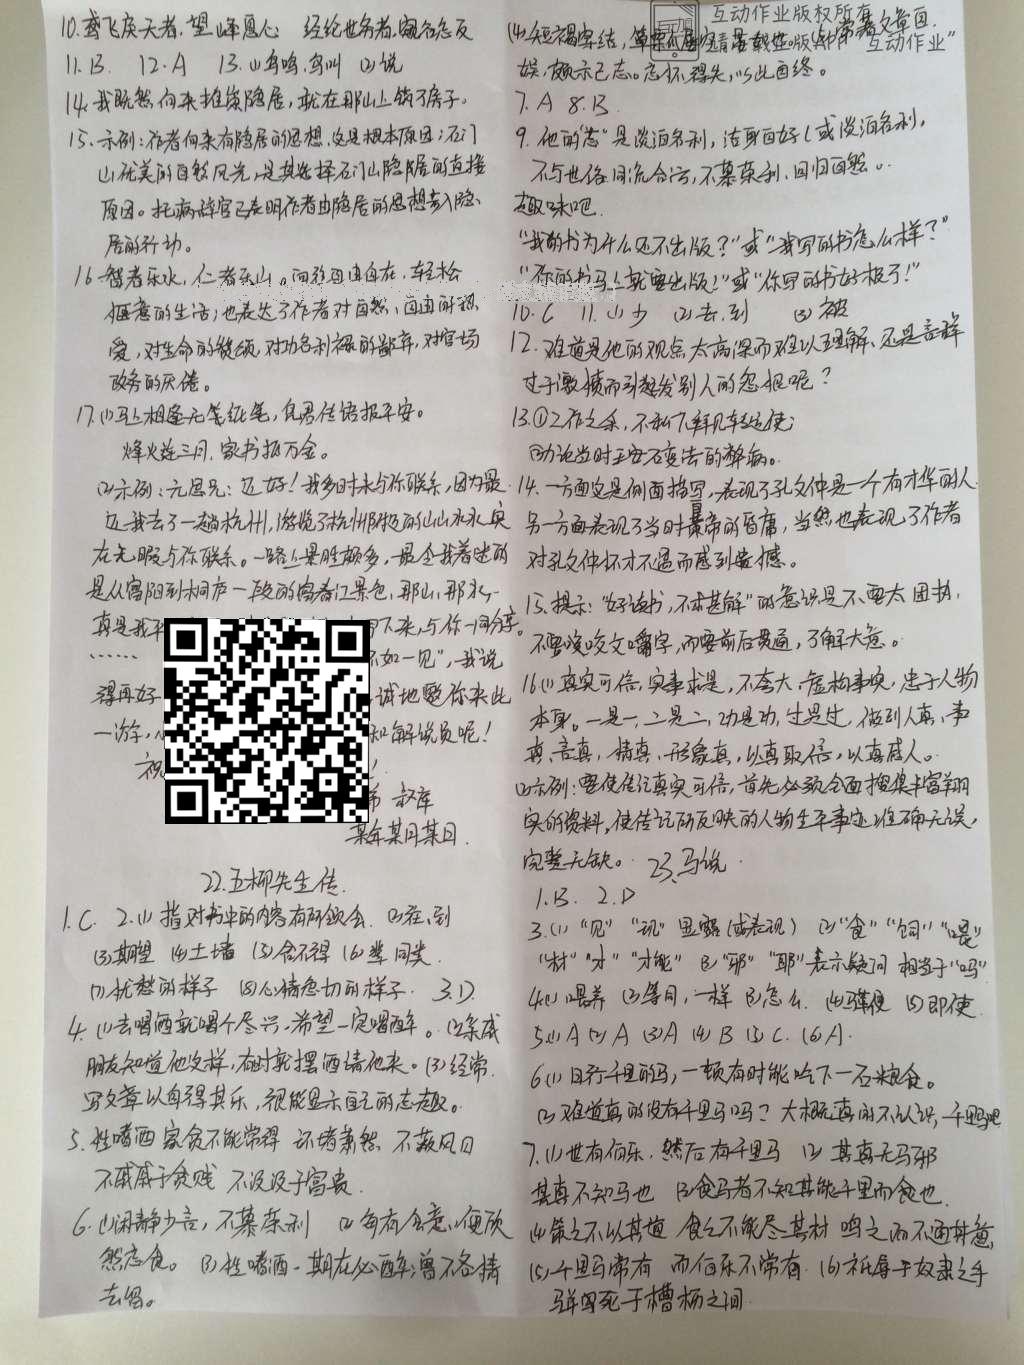 10. 鸢飞戾天者,望峰息心 经纶世务者,窥谷忘反
11. B. 12. A 13. ⑴鸟鸣,鸟叫 ⑵说
14. 我既然向来推崇隐居,就在那山上筑了房子。
15. 示例:作者向来有隐居的思想,这是根本原因;石门
山优美的自然风光,是其选择石门山隐居的直接
原因。托病辞官已表明作者由隐居的思想步入隐
居的行动。
16. 智者乐水,仁者乐山。向往自由自在,轻松
惬意的生活;也表达了作者对自然、自由的热
爱,对生命的赞颂,对功名利禄的鄙弃,对官场
政务的厌倦。
17. ⑴马上相逢无笔纸笔,凭君传语报平安。
烽火连三月,家书抵万金。
⑵示例:元思兄:近好!我多时未与你联系,因为最
近我去了一趟杭州,游览了杭州附近的山山水水,实
在无暇与你联系。一路上景胜颇多,最令我着迷的
是从富阳到桐庐一段的富春江景色,那山,那水,
真是我平 下来,与你一同分享。
…… 不如一见",我说
得再好 诚地邀你来此
一游, 和解说员呢!
祝
弟 叔庠
某年某月某日.
22. 五柳先生传.
1. C 2. ⑴指对书中的内容有所领会 ⑵在,到
⑶期望 ⑷土墙 ⑸舍不得 ⑹类 同类.
⑺忧愁的样子 ⑻心情急切的样子. 3. D.
4. ⑴去喝酒就喝个尽兴,希望一定喝醉。 ⑵亲戚
朋友知道他这样,有时就摆酒请他来。⑶经常
写文章以自得其乐,很能显示自己的志趣。
5. 性嗜酒 家贫不能常得 环堵萧然 不蔽风日
不戚戚于贫贱 不汲汲于富贵.
6. ⑴闲静少言,不慕荣利 ⑵每有会意,便欣
然忘食。 ⑶性嗜酒 期在必醉 曾不吝情
去留。
互动作业版权所有
互动作业"
⑷短褐穿结,箪瓢屡空 晏如也. ⑸常著文章自
娱,颇示己志。忘怀得失,以此自终。
7. A 8. B
9. 他的"志"是淡泊名利,洁身自好(或淡泊名利,
不与世俗同流合污,不慕荣利,回归自然。
趣味吧.
"我的书为什么还不出版?"或"我写的书怎么样?"
"你的书马上就要出版!"或"你写的书好极了!"
10. C 11. ⑴少 ⑵去,到 ⑶被
12. 难道是他的观点太高深而难以理解,还是言辞
过于激愤而引起发别人的怨恨呢?
13. ①工作之余,不私下拜见转运使;
②力论当时王安石变法的弊病。
14. 一方面这是侧面描写,表现了孔文仲是一个有才华的人
另一方面表现了当时皇帝的昏庸,当然也表现了作者
对孔文仲怀才不遇而感到遗憾。
15. 提示:"好读书,不求甚解"的意识是不要太固执,
不要咬文嚼字,而要前后贯通,了解大意。
16. ⑴真实可信,实事求是,不夸大,虚构事实,忠于人物
本身。一是一,二是二,功是功,过是过,做到人真,事
真,言真,情真,形象真,以真取信,以真感人。
⑵示例:要使传记真实可信,首先必须全面搜集丰富翔
实的资料,使传记所反映的人物生平事迹准确无误,
完整无缺。 23. 马说.
1. B. 2. D
3. ⑴"见" "现" 显露(或表现) ⑵"食" "饲" "喂"
"材" "才" "才能" ⑶"邪" "耶" 表示疑问 相当于"吗"
4. ⑴喂养 ⑵等同,一样 ⑶怎么 ⑷鞭 ⑸即使
5. ⑴A ⑵A ⑶A ⑷B ⑸C. ⑹A.
6. ⑴日行千里的马,一顿有时能吃下一石粮食。
⑵难道真的没有千里马吗?大概真的不认识千里马吧
7. ⑴世有伯乐,然后有千里马 ⑵其真无马邪
其真不知马也 ⑶食马者不知其能千里而食也.
⑷策之不以其道 食之不能尽其材 鸣之而不通其意
⑸千里马常有 而伯乐不常有. ⑹祗辱于奴隶之手
骈死于槽枥之间.